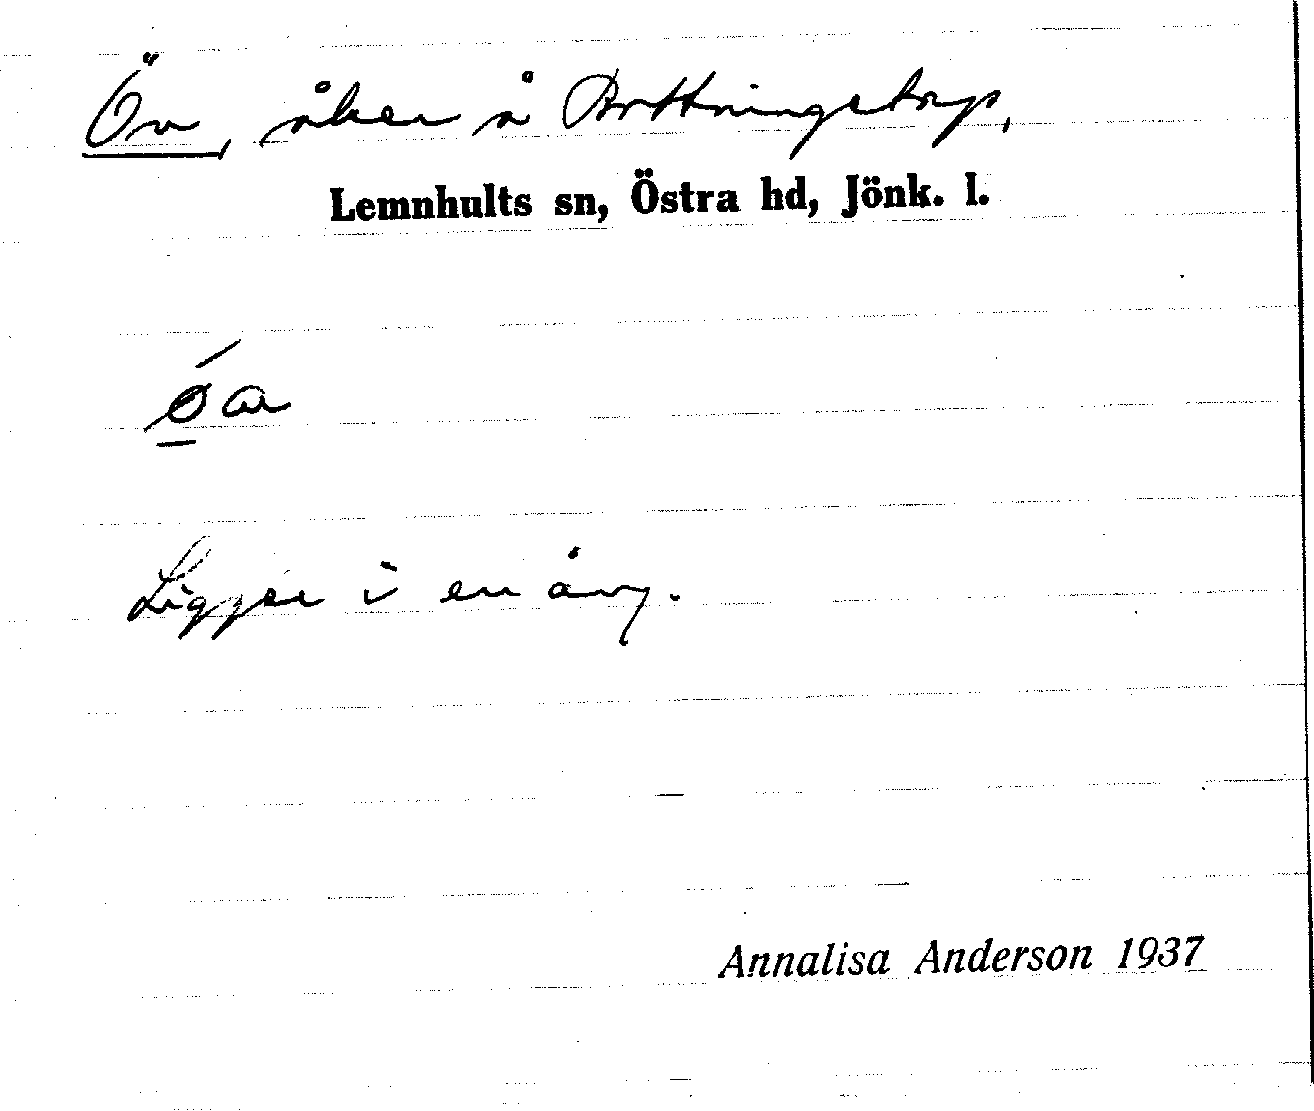 Ön, åker å
Lemnhults sn, Östra hd, Jönk. l.
ǿ̱a
Ligger i en äng.
Annalisa Anderson 1937